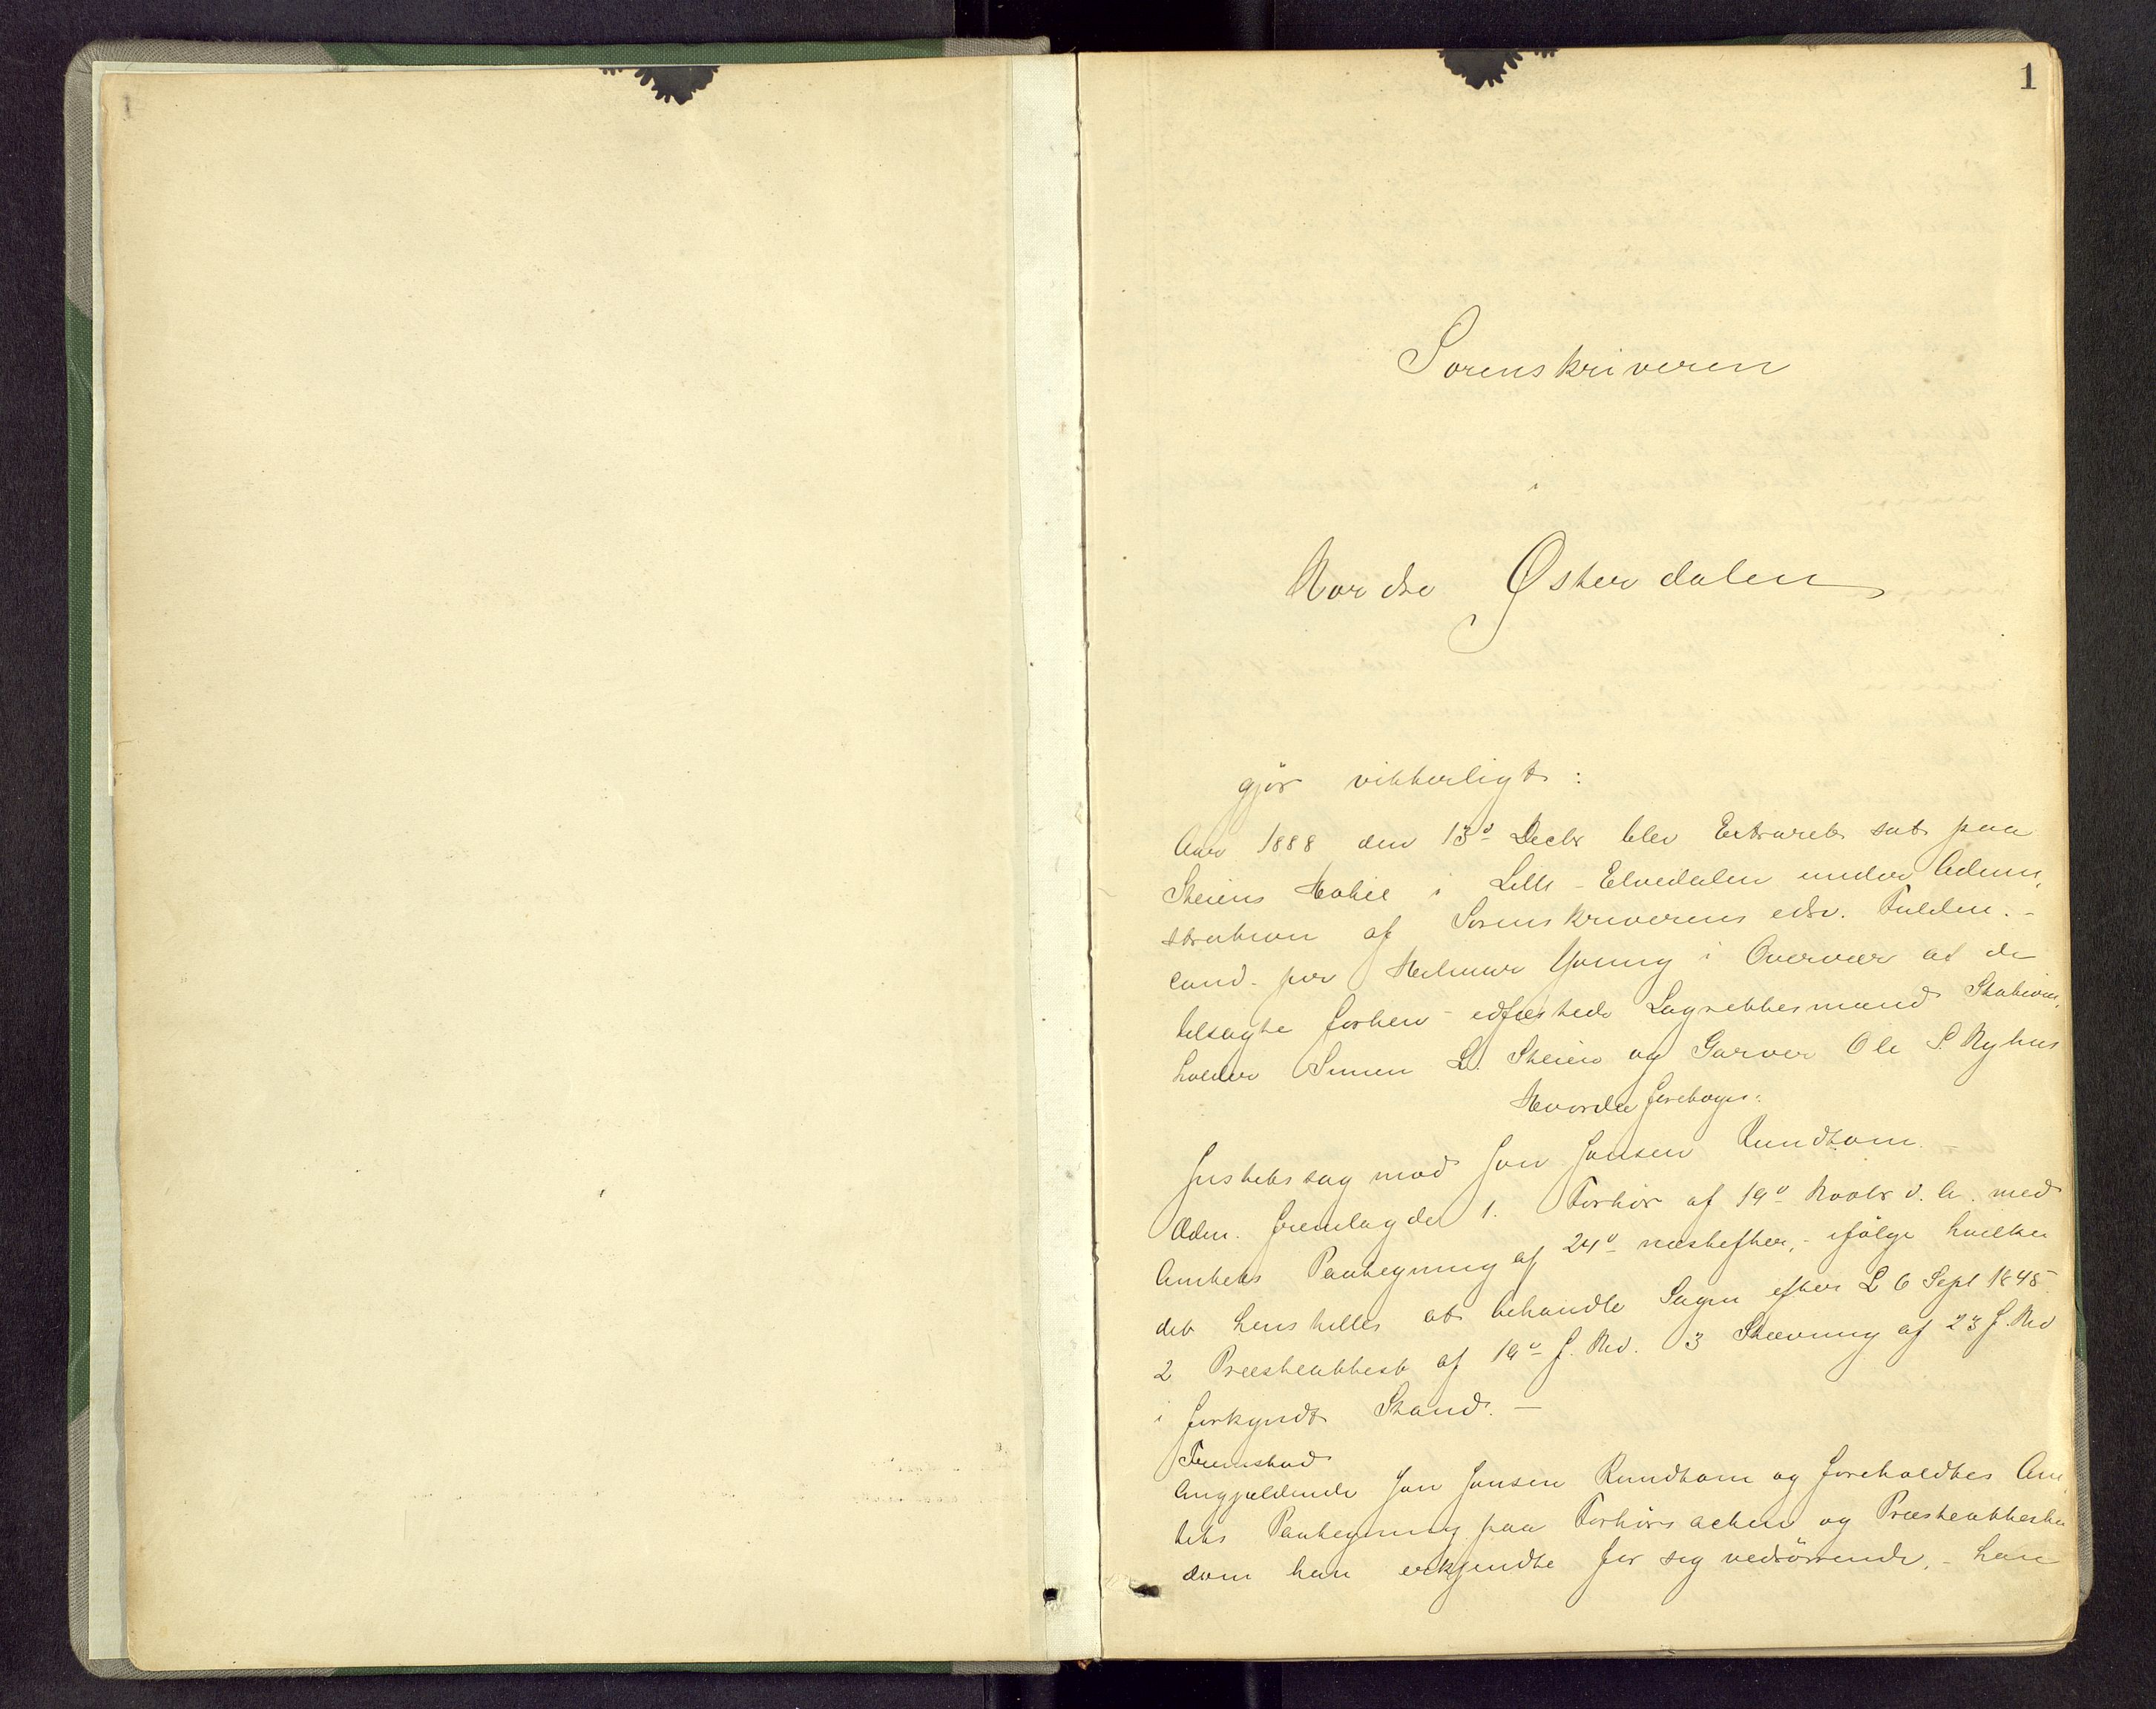 1
Sorenskriveren
i
Nordre Østerdalen
gjör vitterligt:
Aar 1888 den 13d Decbr blev Extraret sat paa
Steiens Hotel i Lille-Elvedalen under Admini,
stration af Sorenskriverens edsv. Fuldm.-
cand. jur Hilmar Young i Overvær af de
tilsagte forhen edfæstede Lagrettesmænd Stations,
holder Simen L. Steien og Garver Ole S. Ryhus
Hvorda foretoges:
Justitssag mod Jon Jonsen Rundtom.-
Adm. fremlagde 1. Forhör af 19d Novbr d. A. med
Amtets Paategning af 24d næstefter,- ifölge hvilken
det henstilles at behandle Sagen efter L 6 Sept 1845
2 Præsteattest af 19d f. Md. 3 Stævning af 23 f. Md
i forkyndt Stand.-
Fremstod
Angjældende Jon Jonsen Rundtom og foreholdtes Am
tets Paategning paa Forhörsacten og Præsteattesten
som han erkjendte for sig vedrörende,- han